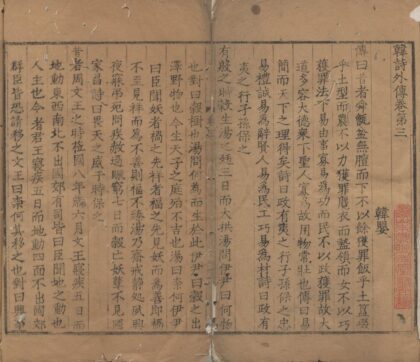 韓詩外傳卷第三
韓嬰
傳曰昔者舜甑盆無膻而下不以餘獲罪飯乎土簋啜
乎土型而農不以力獲罪麑衣而盭領而女不以巧
獲罪法下易由事寡易為功而民不以政獲罪故大
道多容大德衆下聖人寡為故用物常壯也傳曰易
簡而天下之理得矣詩曰政有夷之行子孫保之忠
易禮誠易為辭賢人易為民工巧易為材詩曰政有
夷之行子孫保之
有殷之時榖生湯之廷三日而大拱湯問伊尹曰何物
也對曰榖樹也湯問何為而生於此伊尹曰榖之出
澤野物也今生天子之庭殆不吉也湯曰柰何伊尹
曰臣聞妖者禍之先祥者福之先見妖而為善則禍
不至見祥而為不善則福不臻湯乃齋戒靜處夙興
夜寐弔死問疾赦過賑窮七日而榖亡妖孽不見國
家昌詩曰畏天之威于時保之
昔者周文王之時莅國八年歲六月文王寢疾五日而
地動東西南北不出國郊有司皆曰臣聞地之動也
人主也今者君王寢疾五日而地動四面不出國郊
群臣皆恐請移之文王曰柰何其移之也對曰興